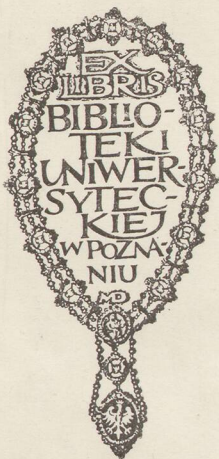 EX
LIBRIS
BIBLIO-
TEKI
UNIWER-
SYTEC-
KIEJ
W POZNA-
NIU
MD